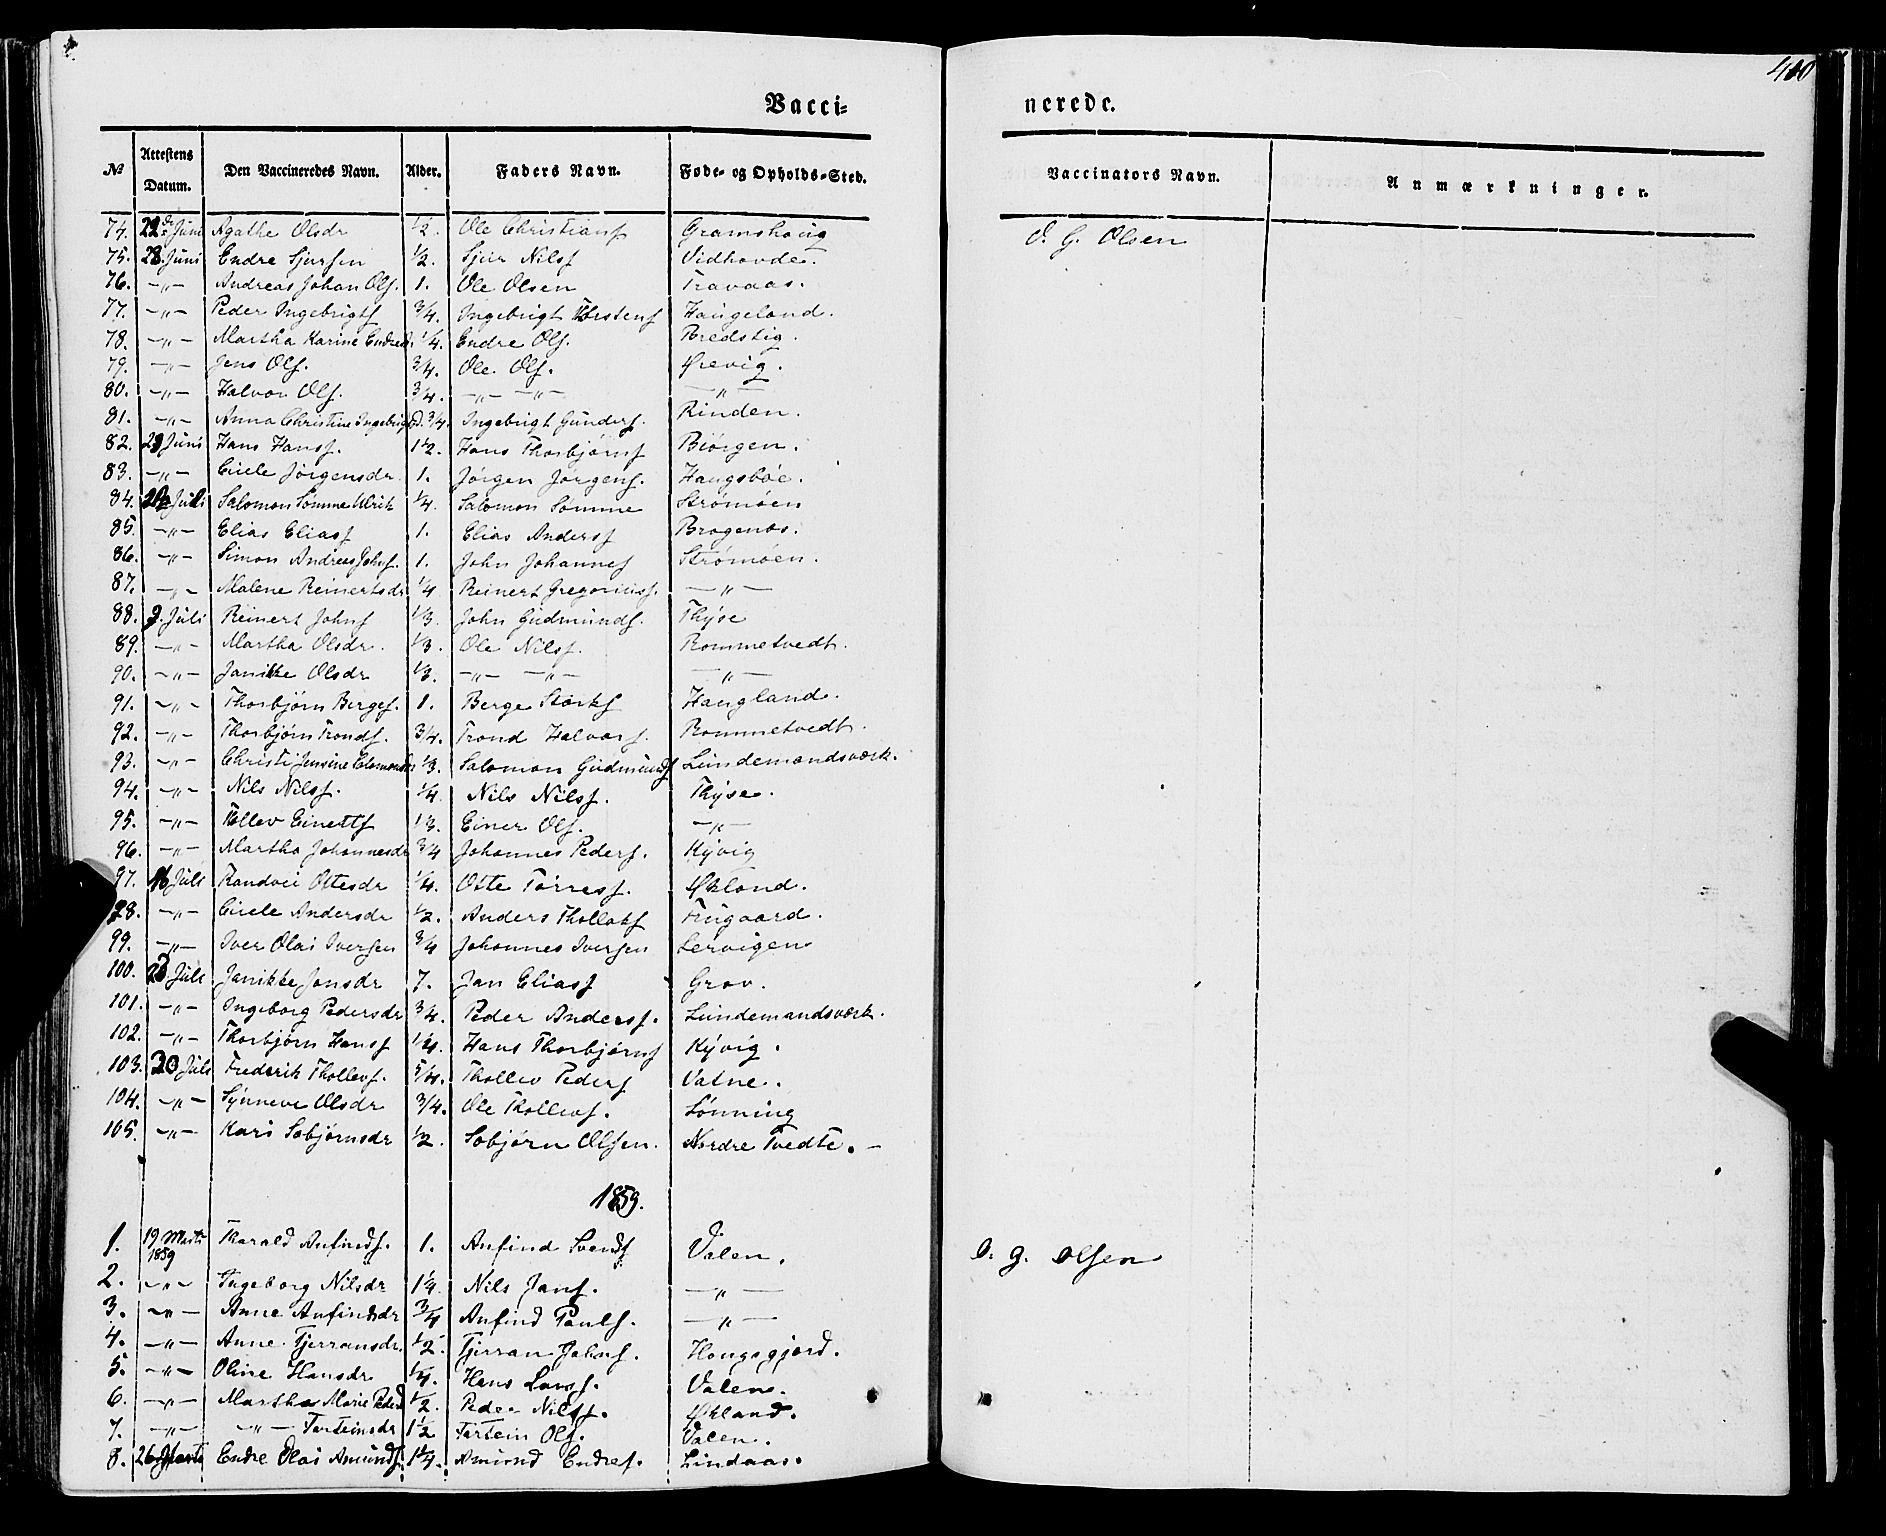 410
Vacci-
nerede.
№ Attestens Datum. Den Vaccineredes Navn. Alder. Faders Navn. Føde- og Opholds-Sted. Vaccinators Navn. Anmærkninger.
74. Juni Agathe Olsdr ½. Ole Christians Gramshoug O. G. Olsen
75. 28. Juni Endre Sjursen ½. Sjur Nilss Vidhovde.
76. -"- Andreas Johan Ols. 1. Ole Olsen Travaas.
77. -"- Peder Ingebrigts ¾. Ingebrigt Torstens Haugeland.
78. -"- Martha Karine Endred. ¼. Endre Ols. Bredstig.
79. -"- Jens Ols. ¾. Ole Ols. Ørevig.
80. -"- Halvor Ols. ¾. -"- -"- -"-
81. -"- Anna Christine Ingebrigtsd. ¾. Ingebrigt Gunders. Rinden.
82. 29 Juni Hans Hanss. 1½. Hans Thorbjørns Biørgen.
83. -"- Jørgensdr 1. Jørgen Jørgens. Haugsbøe.
84. Juli Salomon Sømme Ulrik ¼. Salomon Sømme Strømøen
85. -"- Elias Eliass 1. Elias Anderss Brogenæs.
86. -"- Simon Andreas Johns. 1. John Johannes Strømøen.
87. -"- Malene Reinertsdr ¼ Reinert Gregoriuss. -"-
88. 9. Juli Reinert Johns ⅓. John Gudmunds. Thyse
89. -"- Martha Olsdr. ⅓. Ole Nilss. Rommetvedt.
90. -"- Janikke Olsdr ⅓. -"- -"- -"-
91. -"- Thorbjørn Berges. 1. Berge Storks Haugland.
92. -"- Thorbjørn Tronds. ¾. Trond Halvors. Rommetvedt.
93. -"- Christi Jensine Salomonsdr ⅓. Salomon Gudmunds Lundemandsværk.
94. -"- Nils Nilss. ¼. Nils Nilss. Thyse.
95. -"- Tollev Einerts ⅓. Einer Ols. -"-
96. -"- Martha Johannesdr ¾ Johannes Peders. Kyvig
97. 16 Juli Randvei Ottesdr ¼. Otte Torress. Økland.
98. -"- Andersdr ½. Anders Thollaks Frugaard.
99. -"- Iver Olai Iversen ¾ Johannes Iversen Lervigen
100. Juli Janikke Jansdr 7. Jan Eliass Grov.
101. -"- Ingeborg Pedersdr ¾. Peder Anderss. Lundemandsværk.
102. -"- Thorbjørn Hanss 1¼. Hans Thorbjørns Kyvig.
103. 30 Juli Frederik Thollevs. 5/4. Thollev Peders Vatne.
104. -"- Synneve Olsdr ¾. Ole Thollevs. Lønning
105. -"- Kari Sobjørnsdr ½. Sobjørn Olsen. Nordre Tvedte. -
1859.
1. 19 Marts 1859 Tharald Anfinds. 1. Anfind Svends Valen. O. G. Olsen
2. -"- Ingeborg Nilsdr 1¼. Nils Jans. -"-
3. -"- Anne Anfindsdr ¾ Anfind Pouls. -"-
4. -"- Anne Tjerransdr. ½. Tjerran Johns. Hougsgjærd.
5. -"- Oline Hansdr ¼. Hans Larss. Valen.
6. -"- Martha Marie Pedersd ½. Peder Nilss. Økland.
7. -"- -"- Torteinsdr 1½ Tortein Ols. Valen.
8. 26 Marts Endre Olai Amunds. 1¼. Amund Endres. Lindaas.